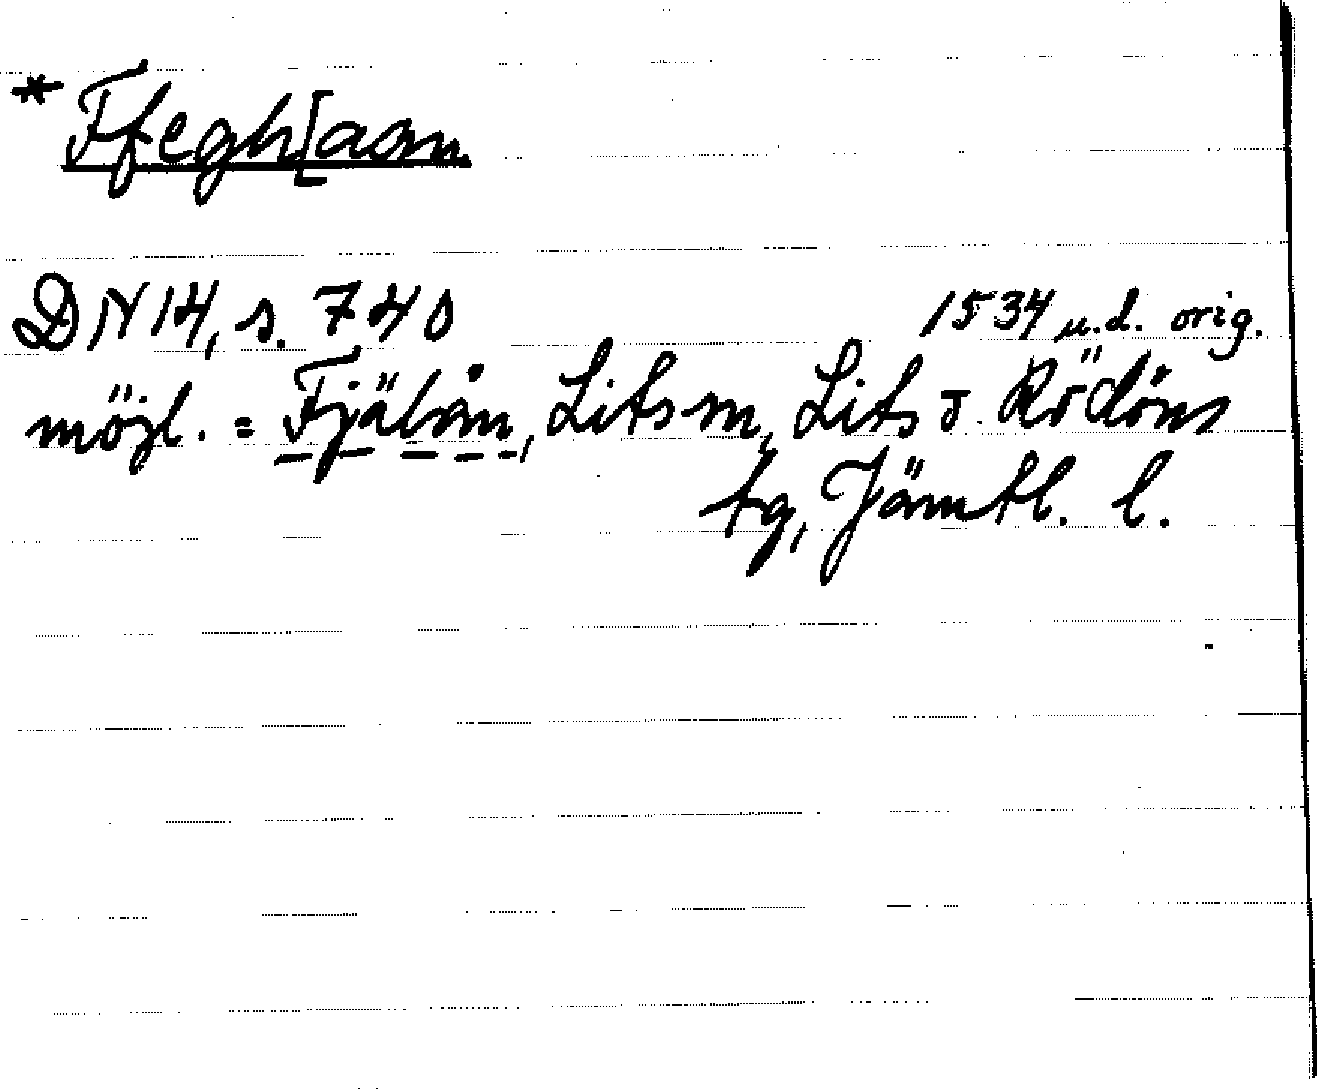 * Ffegh[aam
DN 14, s. 740 1534 u.d. orig.
möjl. = Fjälån, Lits sn, Lits o. Rödöns
tg, Jämtl. l.